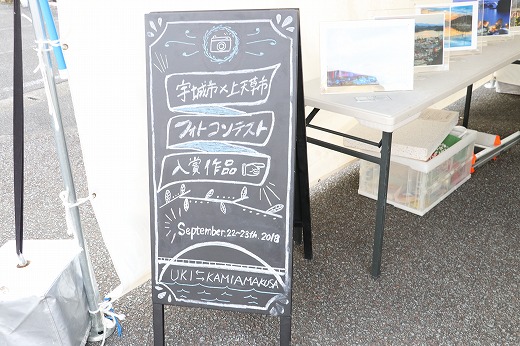 宇城市×上天草市
フォトコンテスト
入賞作品
September.22-23th.2018
UKI⇆KAMIAMAKUSA